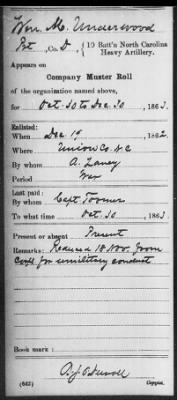 Wm. M. Underwood
Pvt, Co. D, 10 Batt'n North Carolina
Heavy Artillery.
Appears on
Company Muster Roll
of the organization named above,
for Oct. 30 to Dec. 30, 1863.
Enlisted:
When Dec 15, 1862.
Where Union Co N C
By whom A. Laney
Period War
Last paid:
By whom Capt. Toomer
To what time Oct. 30, 1863.
Present or absent Present
Remarks: Reduced 18 Nov. from
Corpl. for unmilitary conduct
Book mark:
(642) Copyist.